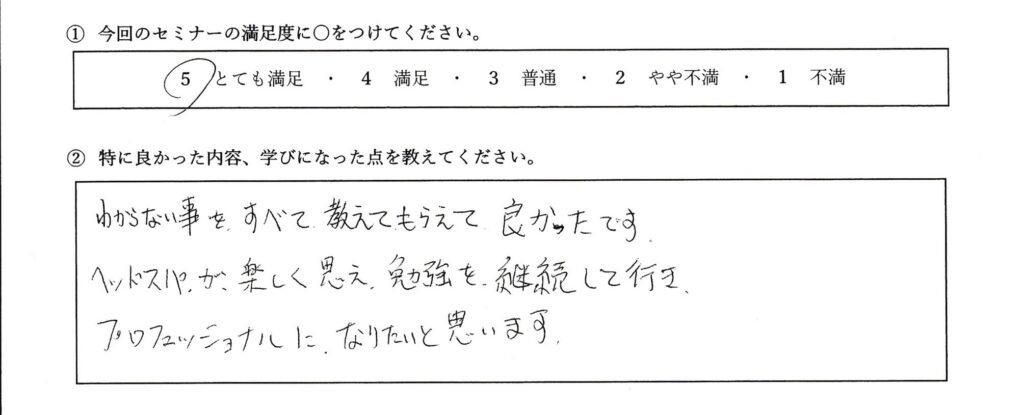 ① 今回のセミナーの満足度に○をつけてください。
5 とても満足 ・ 4 満足 ・ 3 普通 ・ 2 やや不満 ・ 1 不満
② 特に良かった内容、学びになった点を教えてください。
わからない事を、すべて、教えてもらえて、良かったです。
ヘッドスパ、が、楽しく思え、勉強を、継続して行き、
プロフェッショナルに、なりたいと思います。